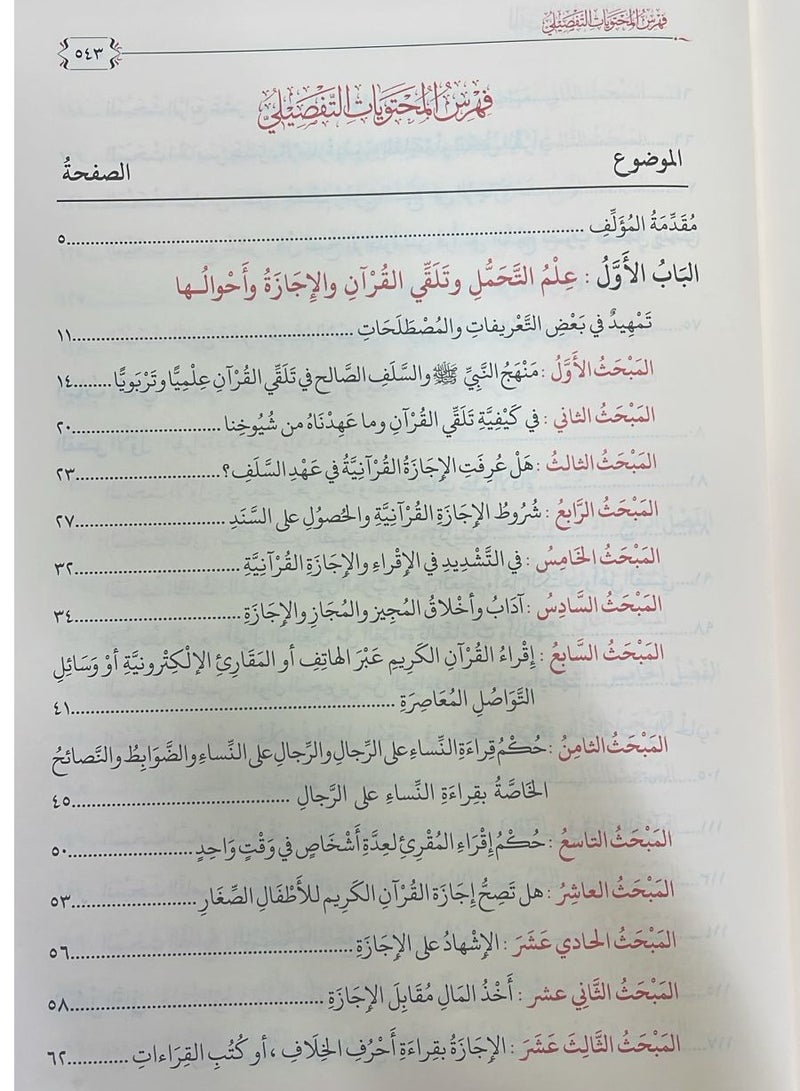 فِهْرِسُ المُحْتَوَيَاتِ التَّفْصِيلِيُّ
٥٤٣
فِهْرِسُ المُحْتَوَيَاتِ التَّفْصِيلِيُّ
الموضوع الصفحةُ
مُقَدِّمَةُ المُؤَلِّفِ ........ ٥
البَابُ الأَوَّلُ : عِلْمُ التَّحَمُّلِ وتَلَقِّي القُرْآنِ والإِجَازَةُ وأَحْوالُـها
تَمْهِيدٌ في بَعْضِ التَّعْرِيفاتِ والمُصْطَلَحَاتِ ........ ١١
المَبْحَثُ الأَوَّلُ : مَنْهَجُ النَّبِيِّ ﷺ والسَّلَفِ الصَّالحِ في تَلَقِّي القُرْآنِ عِلْمِيًّا وتَرْبَوِيًّا ........ ١٤
المَبْحَثُ الثاني : في كَيْفِيَّةِ تَلَقِّي القُرْآنِ وما عَهِدْنَاهُ من شُيُوخِنا ........ ٢٠
المَبْحَثُ الثالثُ : هَلْ عُرِفَتِ الإِجَازَةُ القُرْآنِيَّةُ في عَهْدِ السَّلَفِ؟ ........ ٢٣
المَبْحَثُ الرَّابعُ : شُرُوطُ الإِجَازَةِ القُرْآنِيَّةِ والحُصُولِ على السَّنَدِ ........ ٢٧
المَبْحَثُ الخَامِسُ : في التَّشْدِيدِ في الإِقْراءِ والإِجَازَةِ القُرْآنِيَّةِ ........ ٣٢
المَبْحَثُ السَّادِسُ : آدَابُ وأَخْلاقُ المُجِيزِ والمُجَازِ والإِجَازَةِ ........ ٣٤
المَبْحَثُ السَّابعُ : إِقْراءُ القُرْآنِ الكَرِيمِ عَبْرَ الهاتِفِ أو المَقَارِئِ الإلْكِتِرونيَّةِ أوْ وَسَائِلِ
التَّوَاصُلِ المُعَاصِرَةِ ........ ٤١
المَبْحَثُ الثامنُ : حُكْمُ قِراءَةِ النِّساءِ على الرِّجالِ والرِّجالِ على النِّساءِ والضَّوَابِطُ والنَّصائحُ
الخَاصَّةُ بقِراءَةِ النِّساءِ على الرَّجالِ ........ ٤٥
المَبْحَثُ التاسعُ : حُكْمُ إِقْرَاءِ المُقْرِئِ لعِدَّةِ أَشْخَاصٍ في وَقْتٍ وَاحِدٍ ........ ٥٠
المَبْحَثُ العاشرُ : هل تَصِحُّ إِجَازَة القُرْآنِ الكَرِيمِ للأَطْفَالِ الصِّغَارِ ........ ٥٣
المَبْحَثُ الحَادي عَشَرَ : الإِشْهادُ على الإِجَازَةِ ........ ٥٦
المَبْحَثُ الثَّاني عشر : أَخْذُ المَالِ مُقَابِلَ الإِجَازَةِ ........ ٥٨
المَبْحَثُ الثَّالِثَ عَشَرَ : الإِجَازَةُ بقِرَاءَةِ أَحْرُفِ الخِلَافِ ، أو كُتُبِ القِرَاءاتِ ........ ٦٢